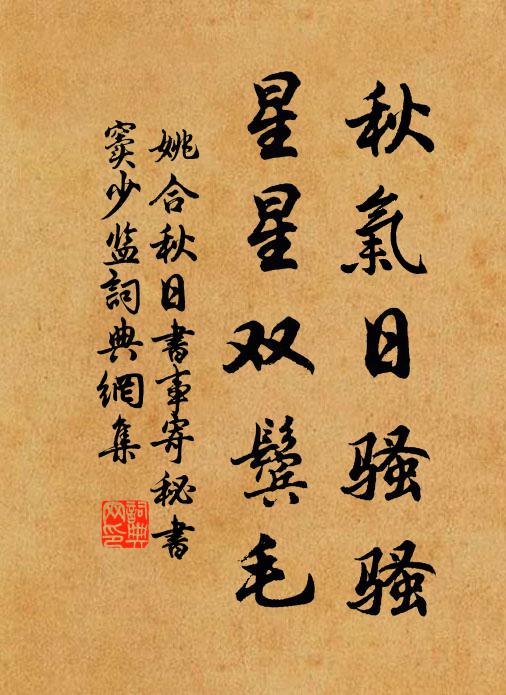 秋氣日骚骚
星星双鬓毛
姚合秋日書事寄秘書
窦少监詞典網集
詞典網印